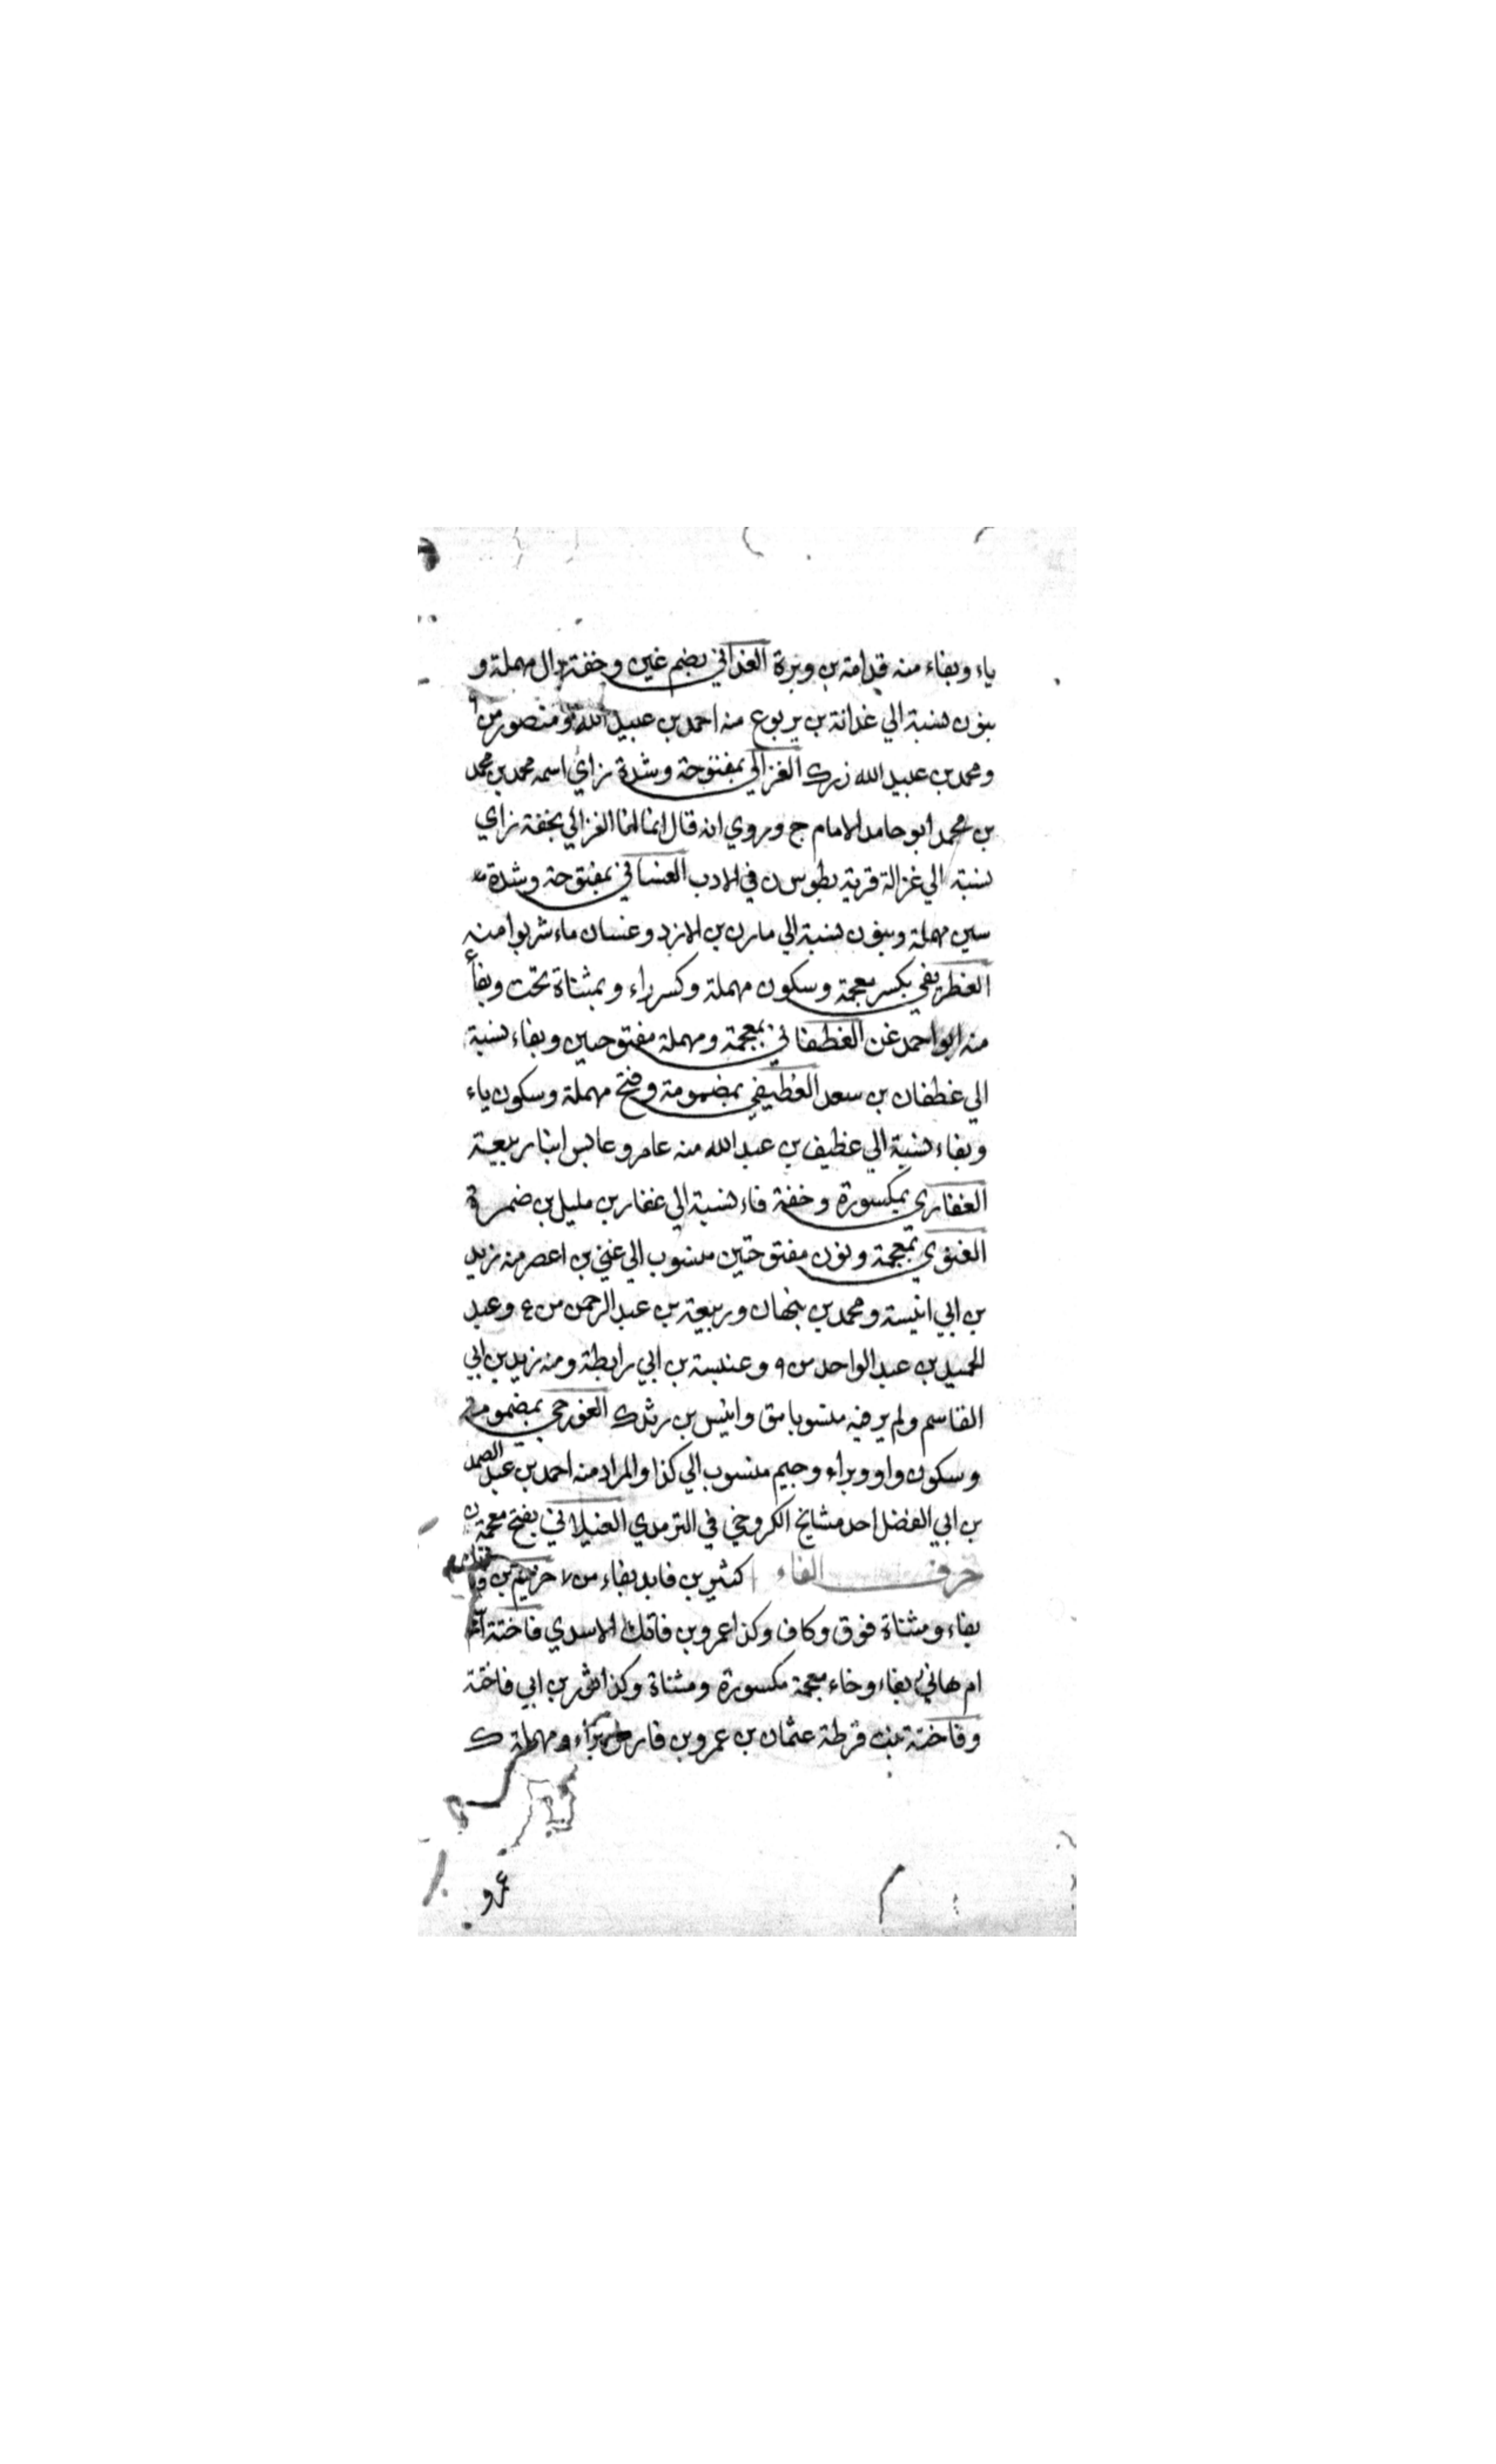 ياء وبفاء منه قدامة بن وبرة الغداني بضم غين وخفة دال مهملة و
بنون نسبة الي غدانة بن يربوع منه احمد بن عبيد الله ومنصور من
ومحمد بن عبيد الله زرك الغزالي بمفتوحة وشدة زاي اسمه محمد بن محمد
بن محمد ابو حامد الامام ج وروي انه قال انما انا الغزالي بخفة زاي
نسبة الي غزالة قرية بطوس ن في الادب الغساني بمفتوحة وشدة
سين مهملة وبنون نسبة الي مازن بن الازد وغسان ماء شربوا منه
الغطريفي بكسر معجمة وسكون مهملة وكسر راء وبمثناة تحت وبفاء
منه ابو احمد غن الغطفاني بمعجمة ومهملة مفتوحتين وبفاء نسبة
الي غطفان بن سعد الغطيفي بمضمومة وفتح مهملة وسكون ياء
وبفاء نسبة الي غطيف بن عبد الله منه عامر وعابس ابنا ربيعة
الغفاري بمكسورة وخفة فاء نسبة الي غفار بن مليل بن ضمرة
الغنوي بمعجمة ونون مفتوحتين منسوب الي غني بن اعصر منه زيد
بن ابي انيسة ومحمد بن بنهان وربيعة بن عبد الرحمن من ع وعبد
الحميد بن عبد الواحد من ٩ وعنبسة بن ابي رابطة ومنه زيد بن ابي
القاسم ولم يرفيه منسوبا مق وانيس بن رثدك الغورجي بمضمومة
وسكون واو وبراء وجيم منسوب الي كذا والمراد منه احمد بن عبد الصمد
بن ابي الفضل احد مشايخ الكروخي في الترمدي الغيلاني بفتح معجمة
حرف الفاء كثير بن فايد بفاء من ٧ خزيم بن فاتك
بفاء ومثناة فوق وكاف وكذا عمرو بن فاتك الاسدي فاختة
ام هاني بفاء وخاء معجمة مكسورة ومثناة وكذا ثور بن ابي فاختة
وفاختة بنت قرطة عثمان بن عمرو بن فارط براء ومهملة ك